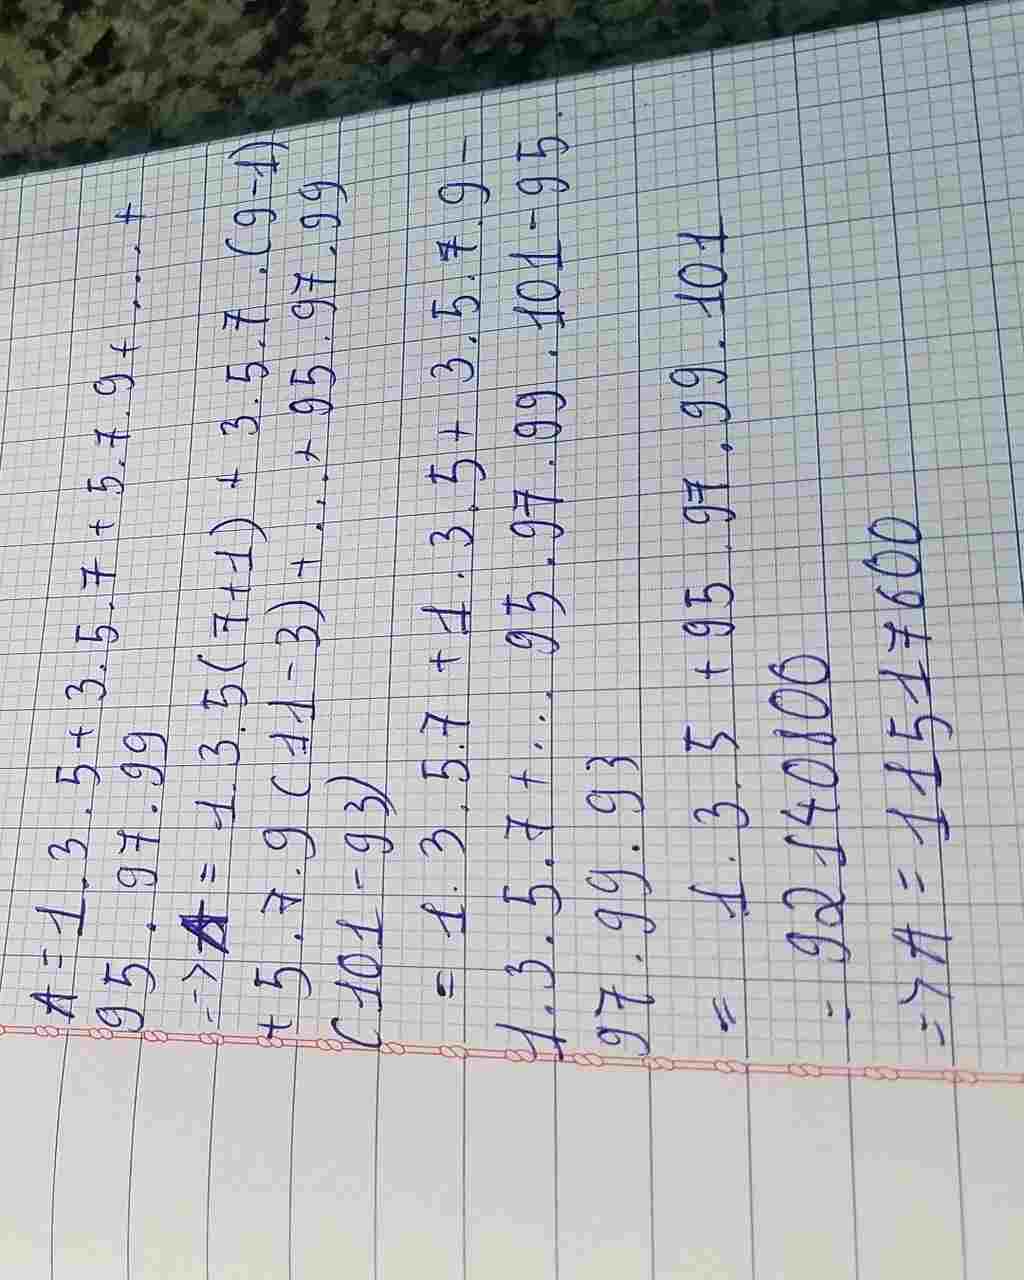 A = 1.3.5+3.5.7+5.7.9+....+
95.97.99
=> A = 1.3.5(7+1) + 3.5.7.(9-1)
+5.7.9(11-3)+...+95.97.99
(101-93)
= 1.3.5.7 +1.3.5+3.5.7.9-
1.3.5.7+... 95.97.99.101-95.
97.99.93
= 1.3.5 +95.97.99.101
= 92140800
=> A = 11517600